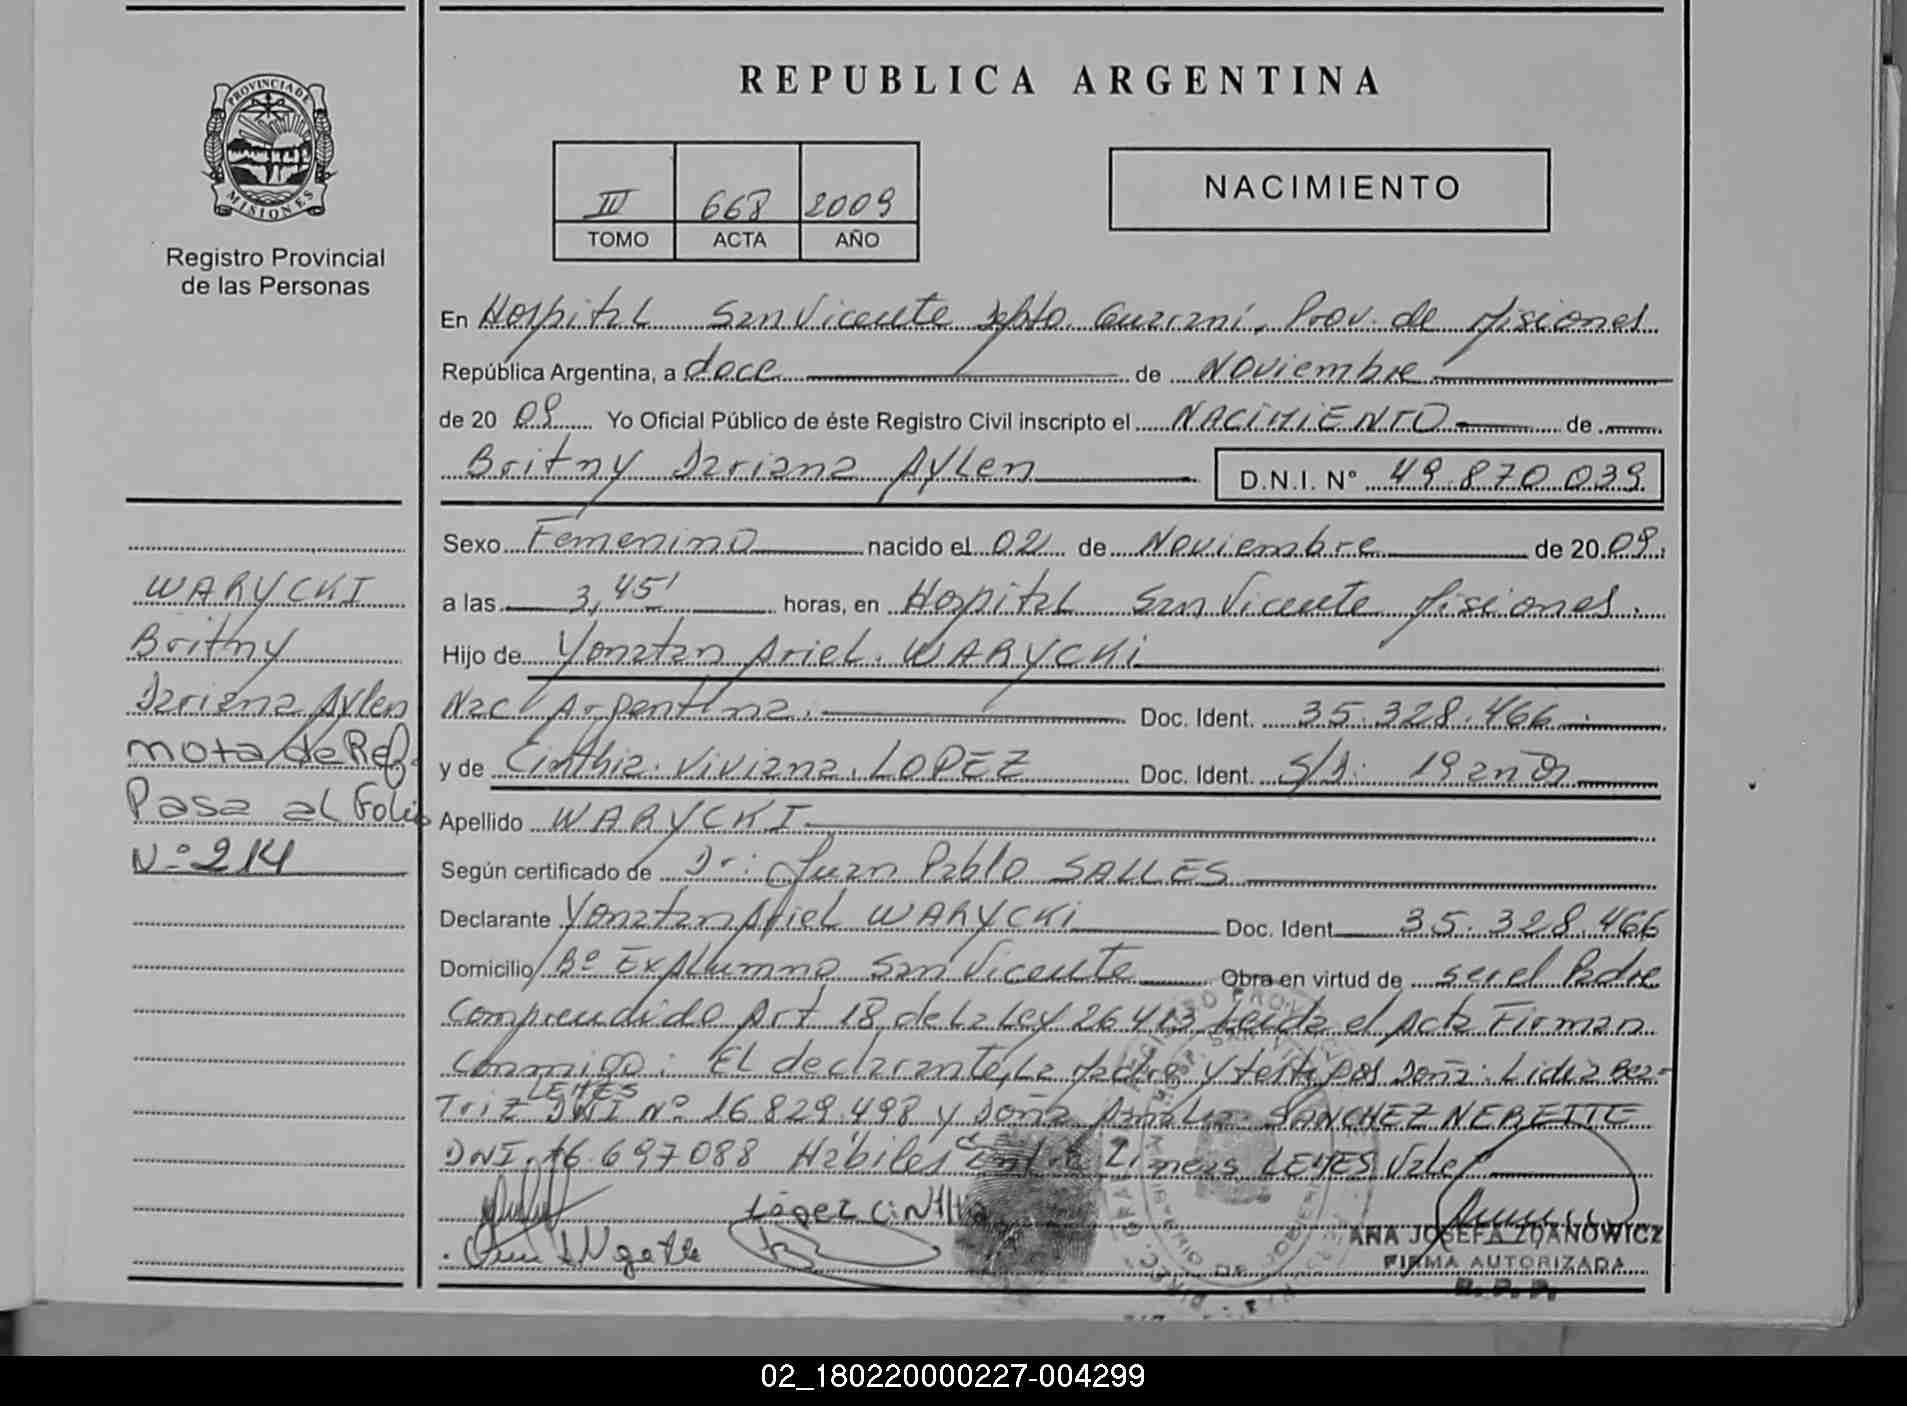 PROVINCIA DE
MISIONES
Registro Provincial
de las Personas
WARYCKI
Britny
Dariana Aylen
nota de Ref.
Pasa al Folio
N.º 214
REPUBLICA ARGENTINA
III 668 2009
TOMO ACTA AÑO
NACIMIENTO
En Hospital San Vicente Dpto. Guaraní, Prov. de Misiones
República Argentina, a doce de Noviembre
de 20 09 Yo Oficial Público de éste Registro Civil inscripto el NACIMIENTO de
Britny Dariana Aylen D.N.I. N° 49.870.039
Sexo Femenino nacido el 02 de Noviembre de 20 09.
a las 3,45' horas, en Hospital San Vicente Misiones.
Hijo de Yonatan Ariel. WARYCKI
Nac Argentina. Doc. Ident. 35.328.466
y de Cinthia. Viviana. LOPEZ Doc. Ident. S/D. 19 años
Apellido WARYCKI
Según certificado de Dr: Juan Pablo SALLES
Declarante Yonatan Ariel WARYCKI Doc. Ident. 35.328.466
Domicilio Bº Ex Alumno San Vicente Obra en virtud de ser el Padre
Comprendido Art 18 de La Ley 26413 Leida el Acta Firman
Conmigo: El declarante, La Madre y testigos Doña: Lidia Bea-
LEMES
Triz DNI Nº 16.829.498 y Doña Amalia SANCHEZ NEREITTE
DNI. 16.697088 Hábiles Entre Lineas LEMES Vale
López Cinthia
ANA JOSEFA ZDANOWICZ
FIRMA AUTORIZADA
R. P. P.
02_180220000227-004299